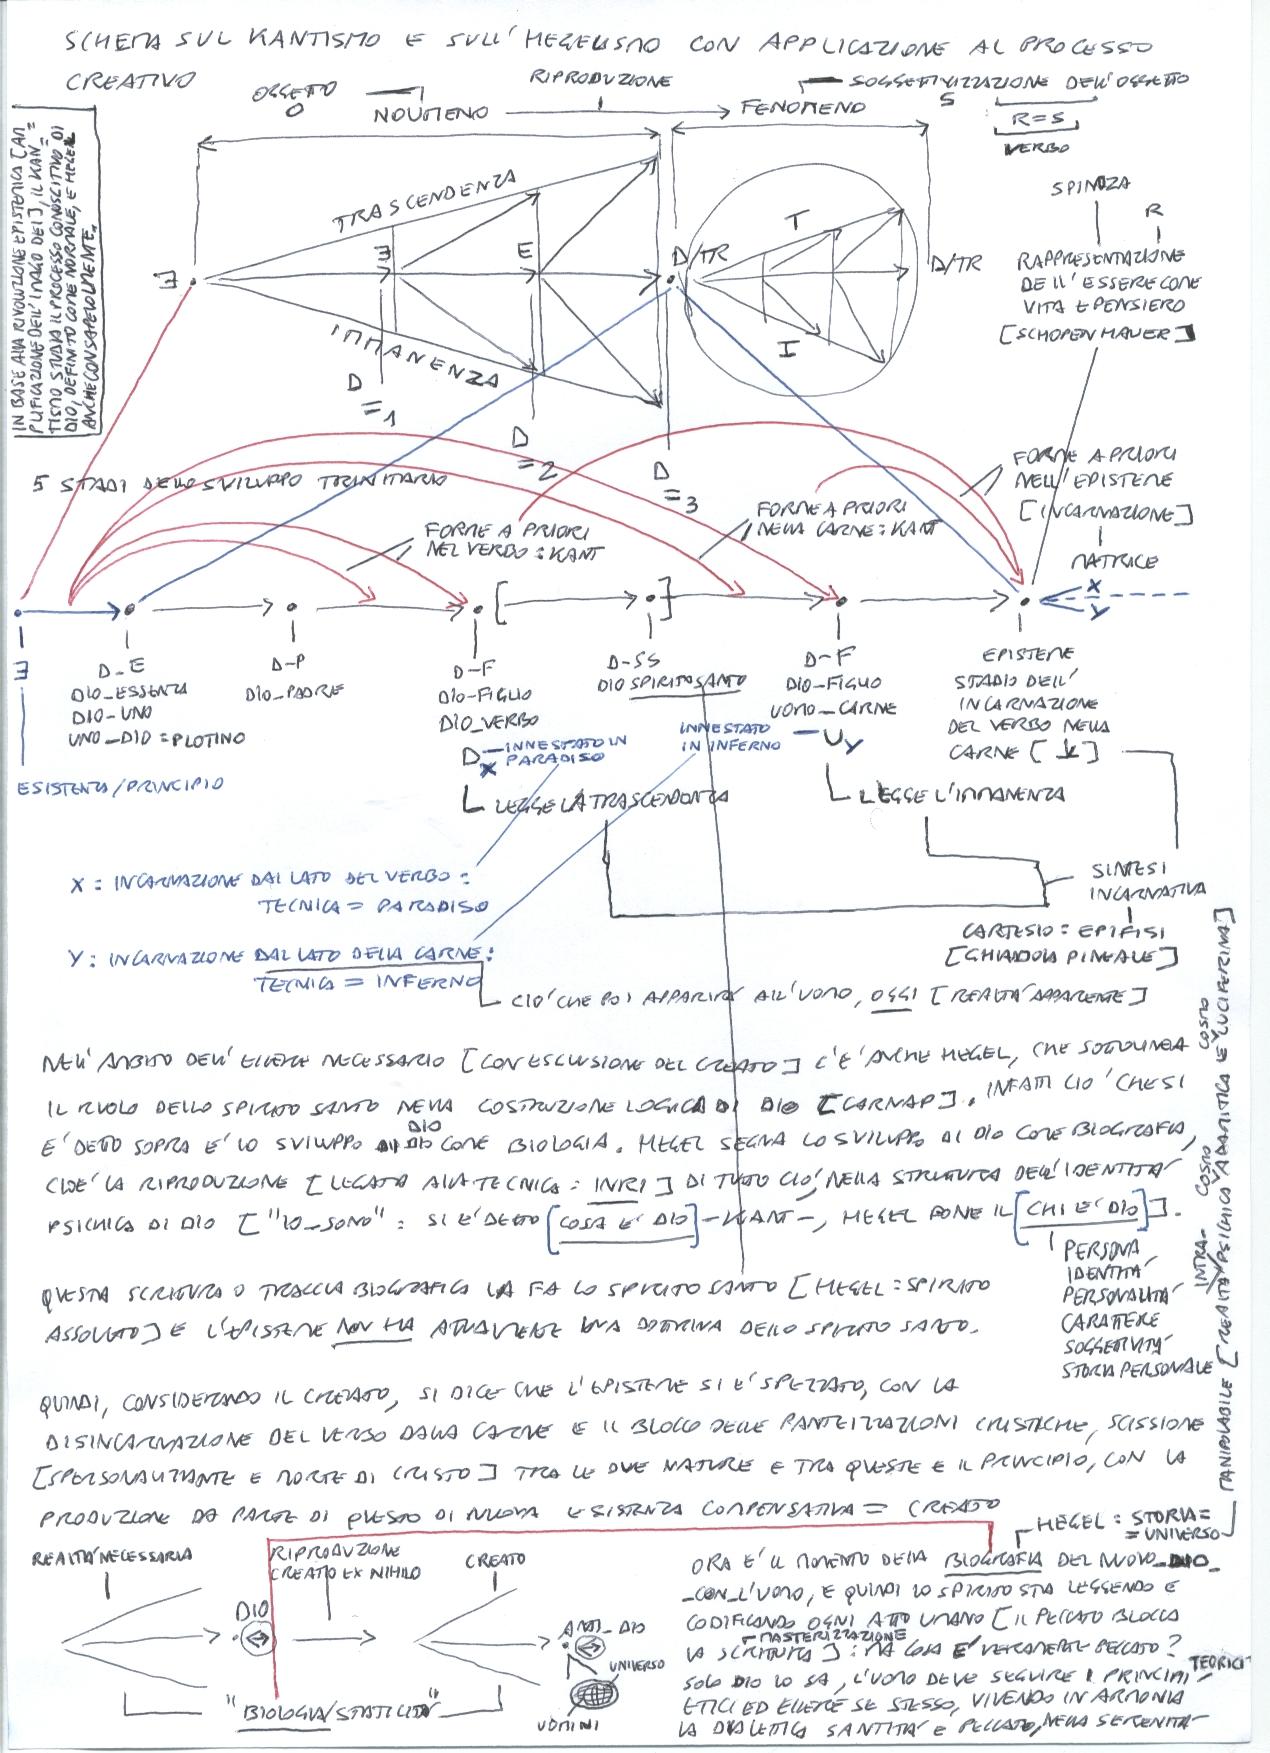 SCHEMA SUL KANTISMO E SULL'HEGELISMO CON APPLICAZIONE AL PROCESSO
CREATIVO
OGGETTO
O
NOUMENO
RIPRODUZIONE
FENOMENO
SOGGETTIVIZZAZIONE DELL'OGGETTO
S
R=S
VERBO
IN BASE ALLA RIVOLUZIONE EPISTEMICA [AM=
PLIFICAZIONE DELL'IMAGO DEI], IL KAN=
TISMO STUDIA IL PROCESSO CONOSCITIVO DI
DIO, DEFINITO COME NORMALE, E HEGEL
ANCHE CONSAPEVOLMENTE.
TRASCENDENZA
IMMANENZA
E
E
E
D/TR
T
I
D/TR
D=1
D=2
D=3
SPINOZA
R
RAPPRESENTAZIONE
DELL'ESSERE COME
VITA E PENSIERO
[SCHOPENHAUER]
5 STADI DELLO SVILUPPO TRINITARIO
FORME A PRIORI
NEL VERBO: KANT
FORME A PRIORI
NELLA CARNE: KANT
FORME A PRIORI
NELL'EPISTEME
[INCARNAZIONE]
MATRICE
X
Y
E
ESISTENZA/PRINCIPIO
D_E
DIO_ESSENZA
DIO_UNO
UNO_DIO = PLOTINO
D-P
DIO_PADRE
D-F
DIO-FIGLIO
DIO_VERBO
D X — INNESTATO IN
PARADISO
LEGGE LA TRASCENDENZA
D-SS
DIO SPIRITO SANTO
INNESTATO
IN INFERNO — U Y
D-F
DIO-FIGLIO
UOMO_CARNE
LEGGE L'IMMANENZA
EPISTEME
STADIO DELL'
INCARNAZIONE
DEL VERBO NELLA
CARNE [ ]
X: INCARNAZIONE DAL LATO DEL VERBO:
TECNICA = PARADISO
Y: INCARNAZIONE DAL LATO DELLA CARNE:
TECNICA = INFERNO
CIO' CHE POI APPARIRA' ALL'UOMO, OGGI [REALTA' APPARENTE]
SINTESI
INCARNATIVA
CARTESIO: EPIFISI
[GHIANDOLA PINEALE]
NELL'AMBITO DELL'ESSERE NECESSARIO [CON ESCLUSIONE DEL CREATO] C'E' ANCHE HEGEL, CHE SOTTOLINEA
IL RUOLO DELLO SPIRITO SANTO NELLA COSTRUZIONE LOGICA DI DIO [CARNAP]. INFATTI CIO' CHE SI
E' DETTO SOPRA E' LO SVILUPPO DI DIO COME BIOLOGIA. HEGEL SEGNA LO SVILUPPO DI DIO COME BIOGRAFIA,
CIOE' LA RIPRODUZIONE [LEGATA ALLA TECNICA: INRI] DI TUTTO CIO', NELLA STRUTTURA DELL'IDENTITA'
PSICHICA DI DIO ["IO_SONO": SI E' DETTO [COSA E' DIO] -KANT-, HEGEL PONE IL [CHI E' DIO]].
PERSONA
IDENTITA'
PERSONALITA'
CARATTERE
SOGGETTIVITA'
STORIA PERSONALE
QUESTA SCRITTURA O TRACCIA BIOGRAFICA LA FA LO SPIRITO SANTO [HEGEL: SPIRITO
ASSOLUTO] E L'EPISTEME NON HA ATTUALMENTE UNA DOTTRINA DELLO SPIRITO SANTO.
QUINDI, CONSIDERANDO IL CREATO, SI DICE CHE L'EPISTEME SI E' SPEZZATO, CON LA
DISINCARNAZIONE DEL VERBO DALLA CARNE E IL BLOCCO DELLE CRISTICHE, SCISSIONE
[SPERSONALIZZANTE E MORTE DI CRISTO] TRA LE DUE NATURE E TRA QUESTE E IL PRINCIPIO, CON LA
PRODUZIONE DA PARTE DI QUESTO DI NUOVA ESISTENZA COMPENSATIVA = CREATO
HEGEL: STORIA=
=UNIVERSO
MANIPOLABILE [REALTA' INTRA-PSICHICA COSMO ADAMITICA E COSMO LUCIFERINA]
REALTA' NECESSARIA
DIO
RIPRODUZIONE
CREATO EX NIHILO
CREATO
ANTI_DIO
UNIVERSO
UOMINI
"BIOLOGIA/STATICITA'"
ORA E' IL MOMENTO DELLA BIOGRAFIA DEL NUOVO_DIO_
_CON_L'UOMO, E QUINDI LO SPIRITO STA LEGGENDO E
CODIFICANDO OGNI ATTO UMANO [IL PECCATO BLOCCA
MASTERIZZAZIONE
LA SCRITTURA]: MA COSA E' VERAMENTE PECCATO?
SOLO DIO LO SA, L'UOMO DEVE SEGUIRE I PRINCIPI TEORICI
ETICI ED ESSERE SE STESSO, VIVENDO IN ARMONIA
LA DIALETTICA SANTITA' E PECCATO, NELLA SERENITA'